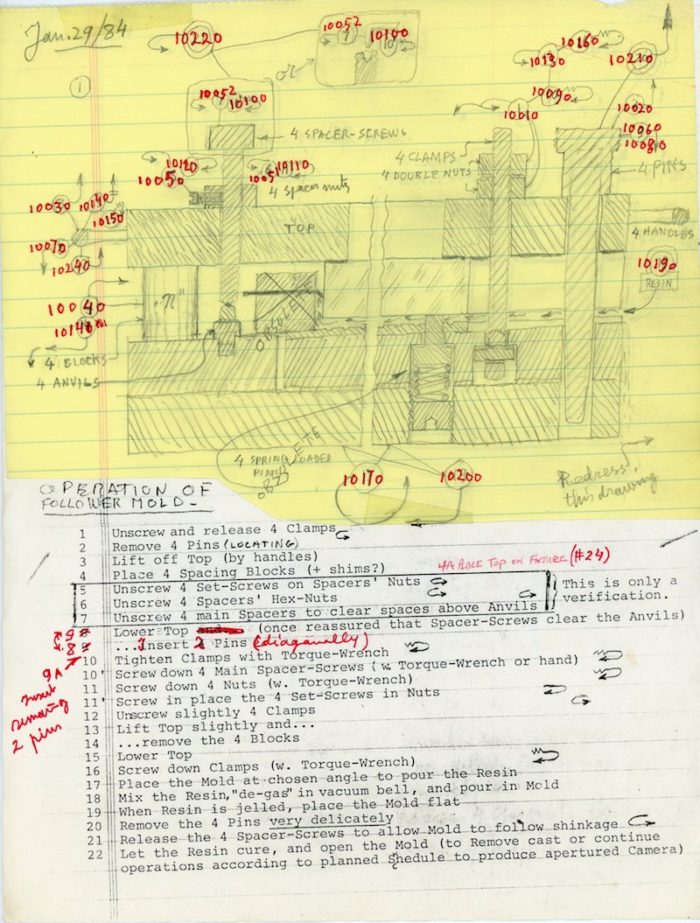 Jan. 29/84
10220
10052
10100
or
1
10052
10100
4 SPACER-SCREWS
10160
10130
10210
10090
10010
10020
10060
10080
4 CLAMPS
4 DOUBLE NUTS
4 PINS
10120
10050
10051
10110
4 Spacer nuts
10030
10140
10150
TOP
4 HANDLES
10070
10240
10190
RESIN
10040
"n"
OBSOLETE
10140
4 BLOCKS
4 ANVILS
4 SPRING LOADED
10170
10200
Redress
this drawing
OPERATION OF
FOLLOWER MOLD -
1 Unscrew and release 4 Clamps
2 Remove 4 Pins (LOCATING)
3 Lift off Top (by handles)
4 Place 4 Spacing Blocks (+ shims?)
4A PLACE TOP ON FIXTURE (#24)
5 Unscrew 4 Set-Screws on Spacers' Nuts
6 Unscrew 4 Spacers' Hex-Nuts
7 Unscrew 4 main Spacers to clear spaces above Anvils
This is only a
verification.
9 8 Lower Top and... (once reassured that Spacer-Screws clear the Anvils)
8 9 ...Insert 2 Pins (diagonally)
9A
insert
remaining
2 pins
10 Tighten Clamps with Torque-Wrench
10' Screw down 4 Main Spacer-Screws (w. Torque-Wrench or hand)
11 Screw down 4 Nuts (w. Torque-Wrench)
11' Screw in place the 4 Set-Screws in Nuts
12 Unscrew slightly 4 Clamps
13 Lift Top slightly and...
14 ...remove the 4 Blocks
15 Lower Top
16 Screw down Clamps (w. Torque-Wrench)
17 Place the Mold at chosen angle to pour the Resin
18 Mix the Resin,"de-gas" in vacuum bell, and pour in Mold
19 When Resin is jelled, place the Mold flat
20 Remove the 4 Pins very delicately
21 Release the 4 Spacer-Screws to allow Mold to follow shinkage
22 Let the Resin cure, and open the Mold (to Remove cast or continue
operations according to planned Shedule to produce apertured Camera)